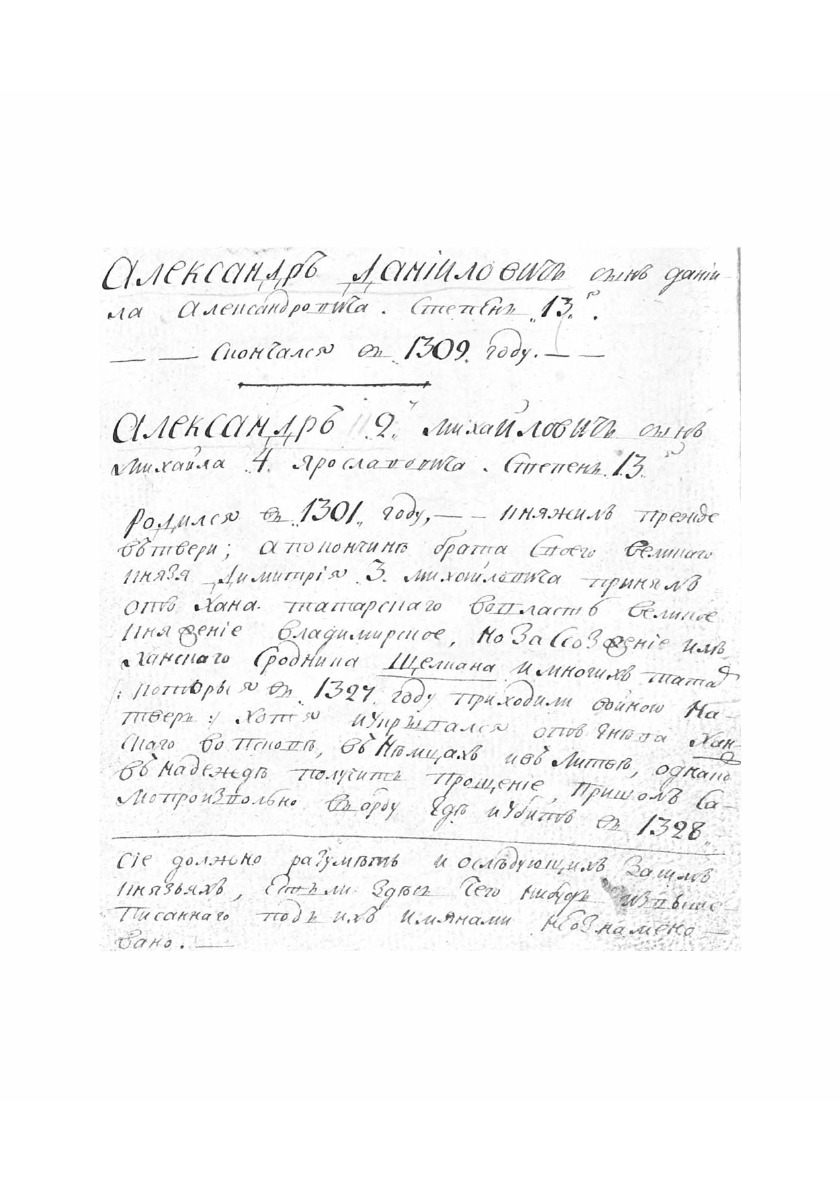 Александръ Даніиловичь сынъ даніи-
ла Александровича. Степень „13.“
— — Скончался въ „1309„ году. — —
Александръ „2.“ Михайловичь сынъ
Михайла „4„ Ярославовича. Степень „13.“
Родился въ „1301„ году, — — княжилъ прежде
въ твери; а по кончинѣ брата своего великаго
князя Димитрія „3„ Михайловича принялъ
отъ Хана татарскаго во власть великое
княженіе владимирское, но за сожженіе имъ
Ханскаго сродника Щелкана и многихъ татаръ
которыя въ „1327„ году приходили войною на
тверь: хотя и укрывался отъ гнѣва Хан-
скаго во псковѣ, въ Нѣмцахъ и въ Литвѣ, однако
въ надеждѣ получить прощеніе, пришолъ са-
мопроизвольно въ орду гдѣ и убитъ въ „1328„
сіе должно разумѣть и о слѣдующихъ за симъ
князьяхъ, Естьли здѣсь чего нибудь изъ выше-
писаннаго подъ ихъ имянами не ознамено-
вано. —